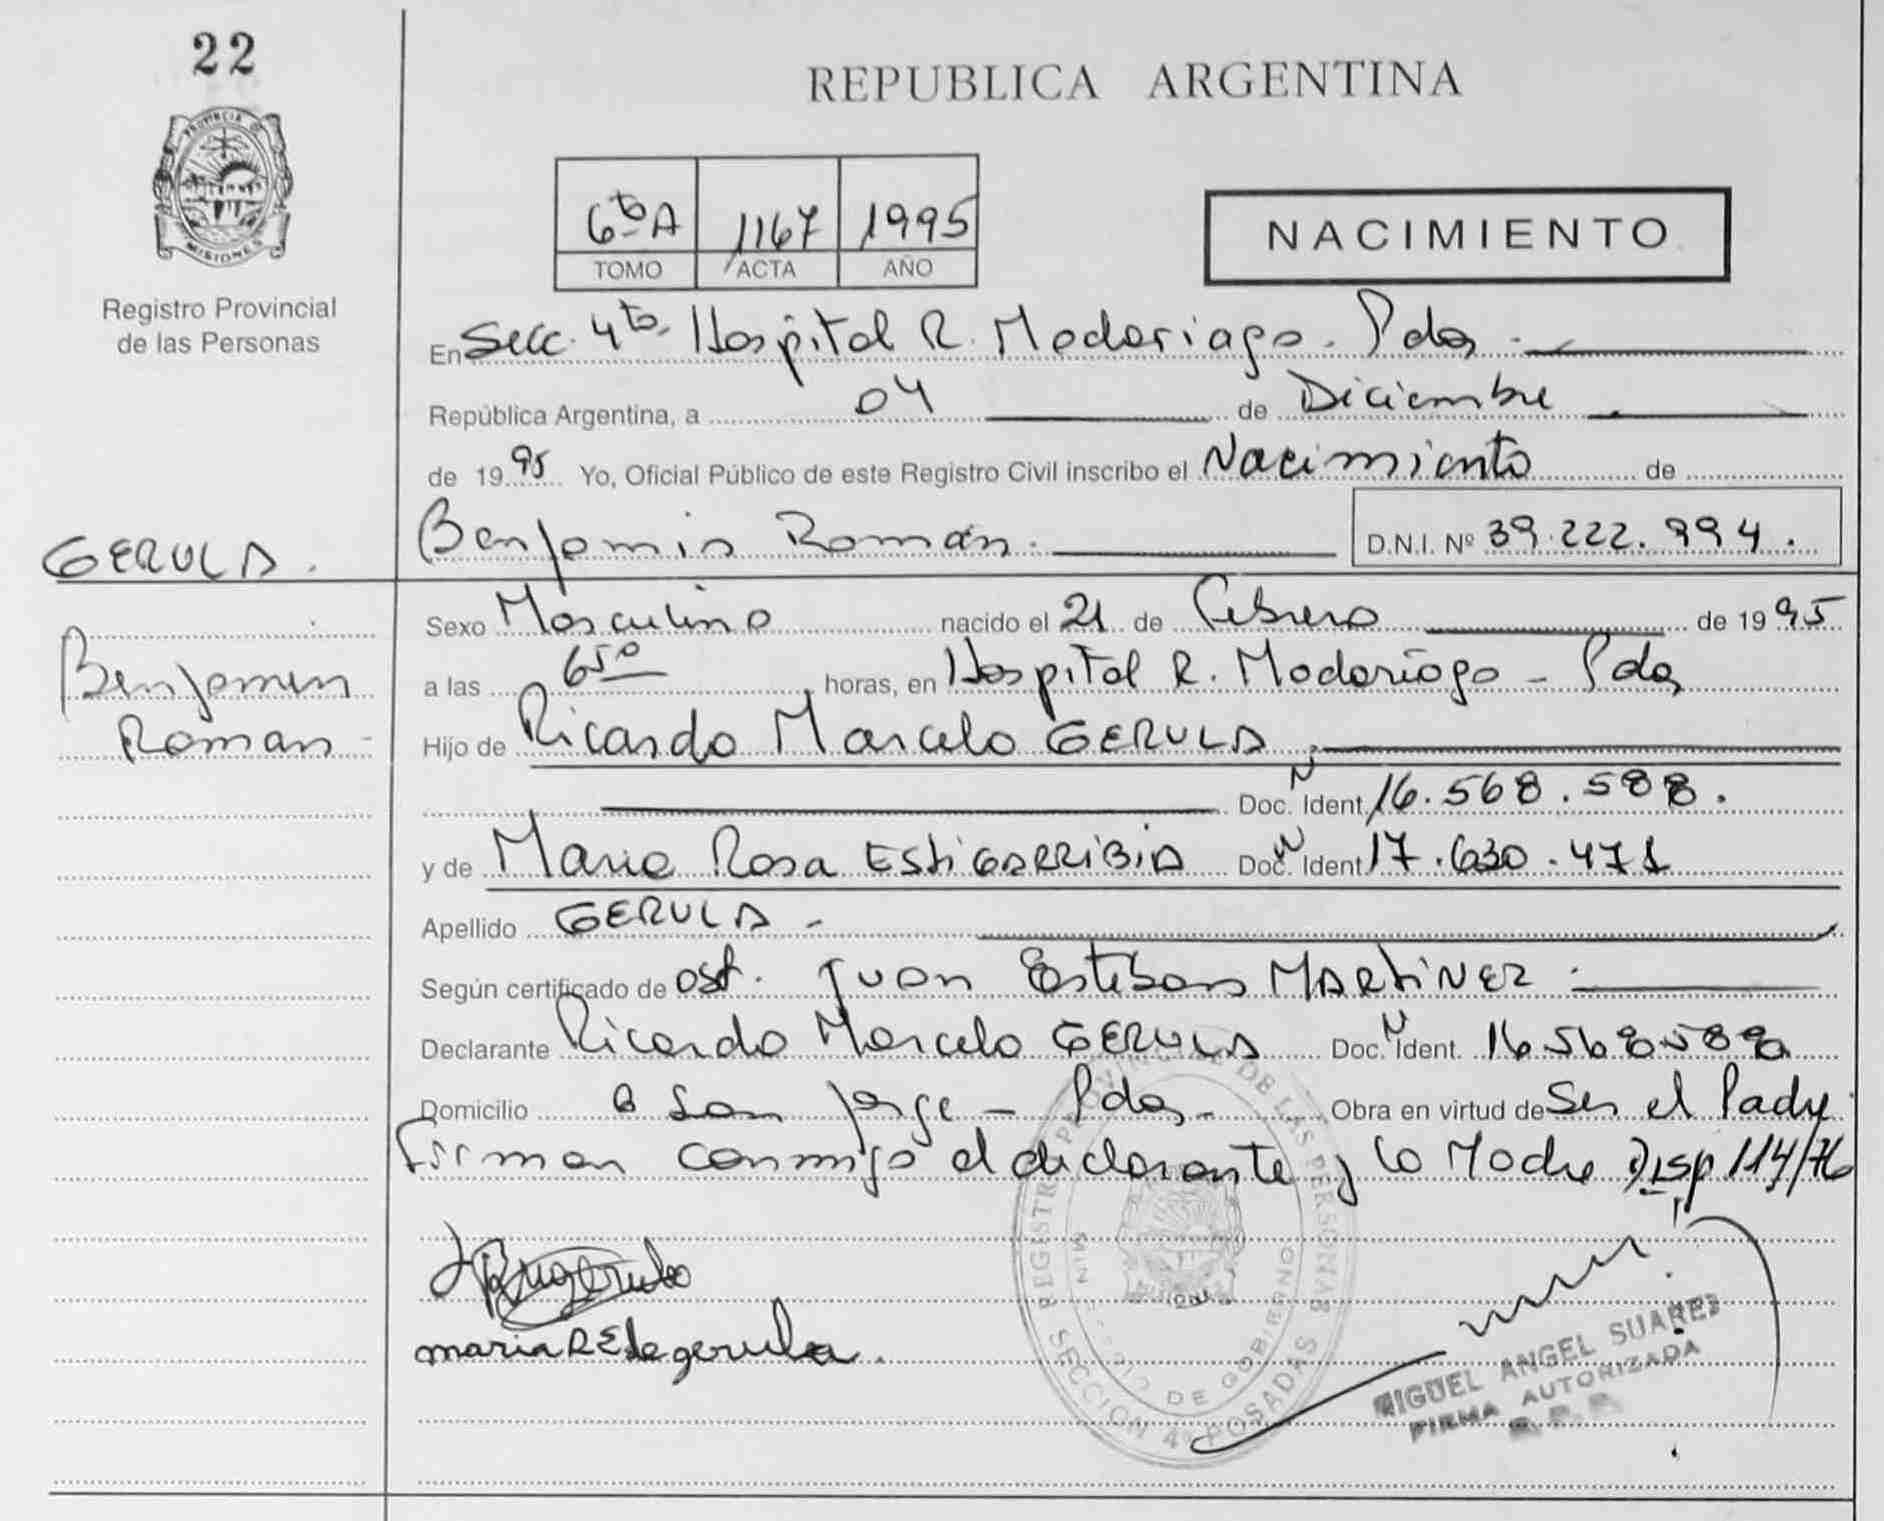 22
REPUBLICA ARGENTINA
PROVINCIA DE
MISIONES
Registro Provincial
de las Personas
6to A 1167 1995
TOMO ACTA AÑO
NACIMIENTO
En Secc. 4ta. Hospital R. Madariaga. Pdas.
República Argentina, a 04 de Diciembre
de 1995 Yo, Oficial Público de este Registro Civil inscribo el Nacimiento de
GERULA.
Benjamin Román. D.N.I. Nº 39.222.994.
Sexo Masculino nacido el 21 de Febrero de 1995
Benjamin
a las 650 horas, en Hospital R. Madariaga - Pdas
Roman -
Hijo de Ricardo Marcelo GERULA.
Doc. N Ident 16.568.588.
y de Maria Rosa ESTIGARRIBIA Doc. N Ident 17.630.471
Apellido GERULA -
Según certificado de obst. Juan Esteban MARTINEZ.
Declarante Ricardo Marcelo GERULA Doc. N Ident. 16.568.588
Domicilio B San Jorge - Pdas - Obra en virtud de Ser el Padre.
Firman conmigo el declarante y la Madre Disp 114/76
maria R E de gerula.
REGISTRO PROVINCIAL DE LAS PERSONAS
MINISTERIO DE GOBIERNO
SECCION 4º POSADAS
MIGUEL ANGEL SUAREZ
FIRMA AUTORIZADA